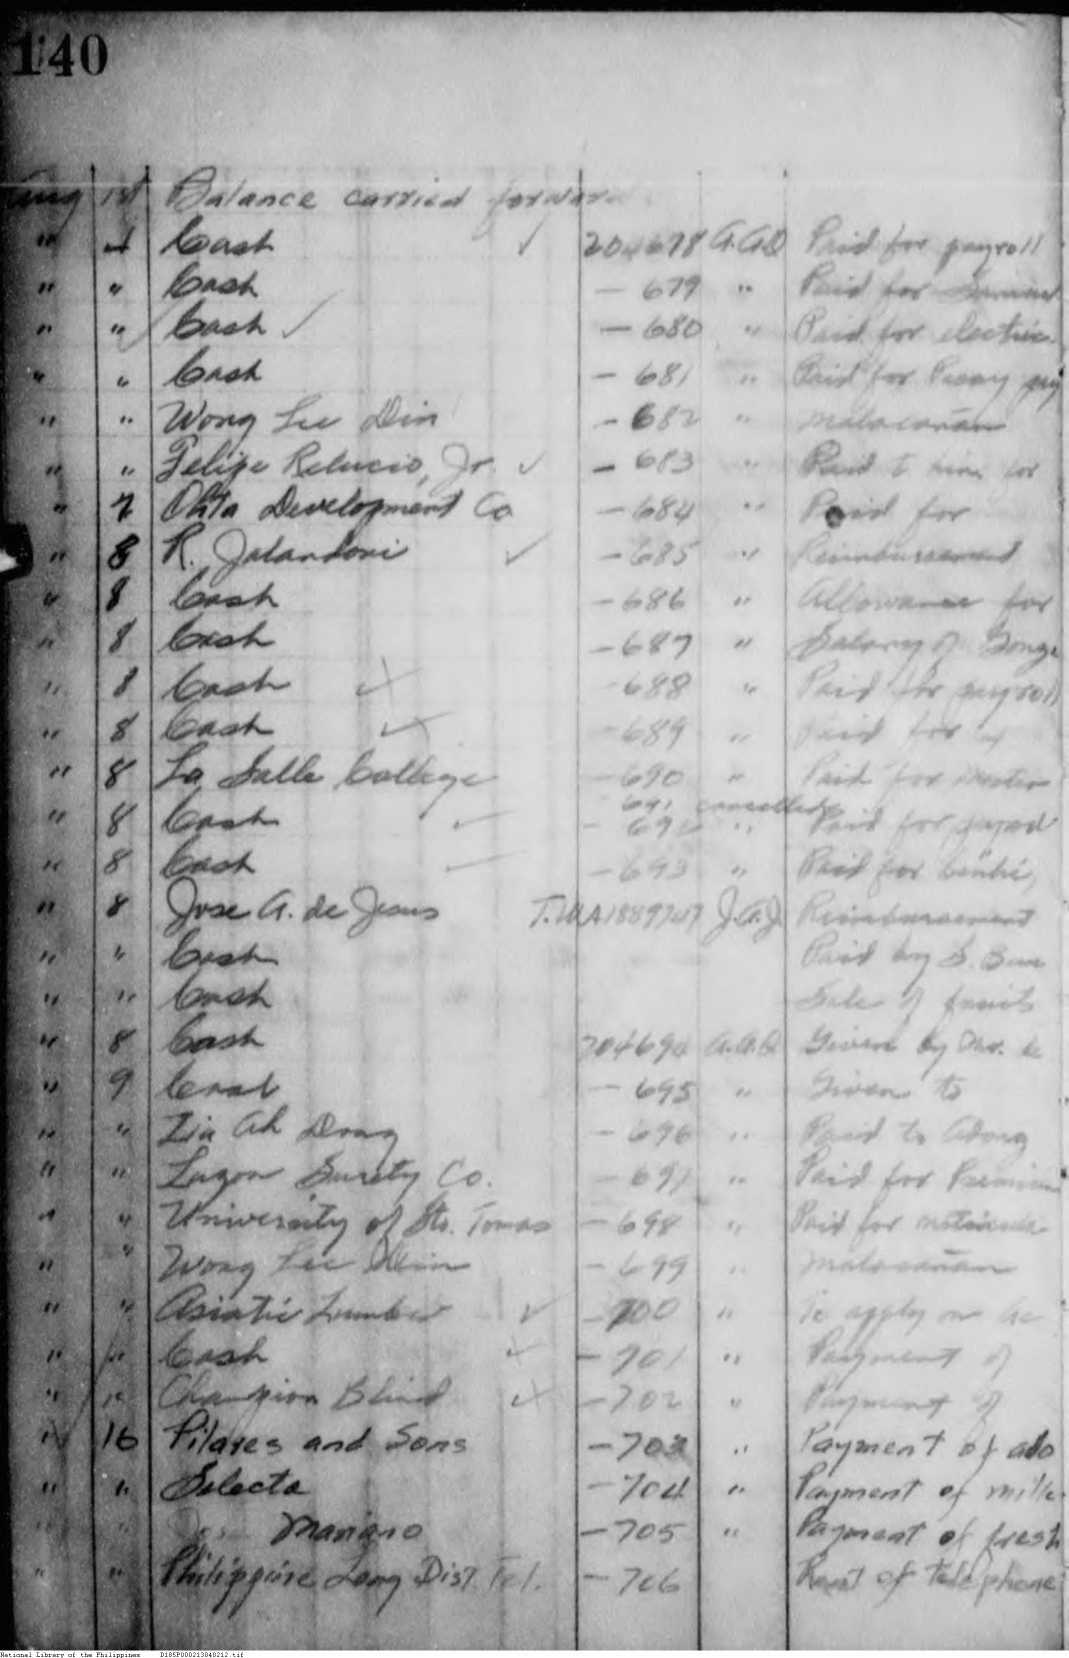 140
Aug 1st Balance carried forward
" 4 Cash ✓ 204678 A.A.Q Paid for payroll
" " Cash — 679 " Paid for
" " Cash ✓ — 680 " Paid for electric
" " Cash — 681 " Paid for Pasay
" " Wong Lee Din — 682 " Malacañan
" " Felipe Relucio, Jr. ✓ — 683 " Paid to him for
" 7 Ohta Development Co — 684 " Paid for
" 8 R. Jalandoni ✓ — 685 " Reimbursement
" 8 Cash — 686 " Allowance for
" 8 Cash — 687 " Salary of
" 8 Cash — 688 " Paid for payroll
" 8 Cash — 689 " Paid for
" 8 La Salle College — 690 " Paid for
691 cancelled
" 8 Cash — 692 " Paid for
" 8 Cash — 693 " Paid for
" 8 Jose A. de Jesus J.A.J. Reimbursement
" " Cash Paid by S.
" " Cash Sale of fruits
" 8 Cash 204694 A.A.Q Given by
" 9 — 695 " Given to
" " Ah — 696 " Paid to Adong
" " Luzon Surety Co. — 697 " Paid for Premium
" " University of Sto. Tomas — 698 " Paid for
" " Wong Lee Din — 699 " Malacañan
" " Asiatic Lumber ✓ — 700 " To apply on
" " Cash — 701 " Payment of
" " Champion Blind — 702 " Payment of
" 16 Pilares and Sons — 703 " Payment of
" " Selecta — 704 " Payment of milk
" " Mariano — 705 " Payment of fresh
" " Philippine Long Dist. Tel. — 706 Rent of telephone
National Library of the Philippines D185P000213040212.tif